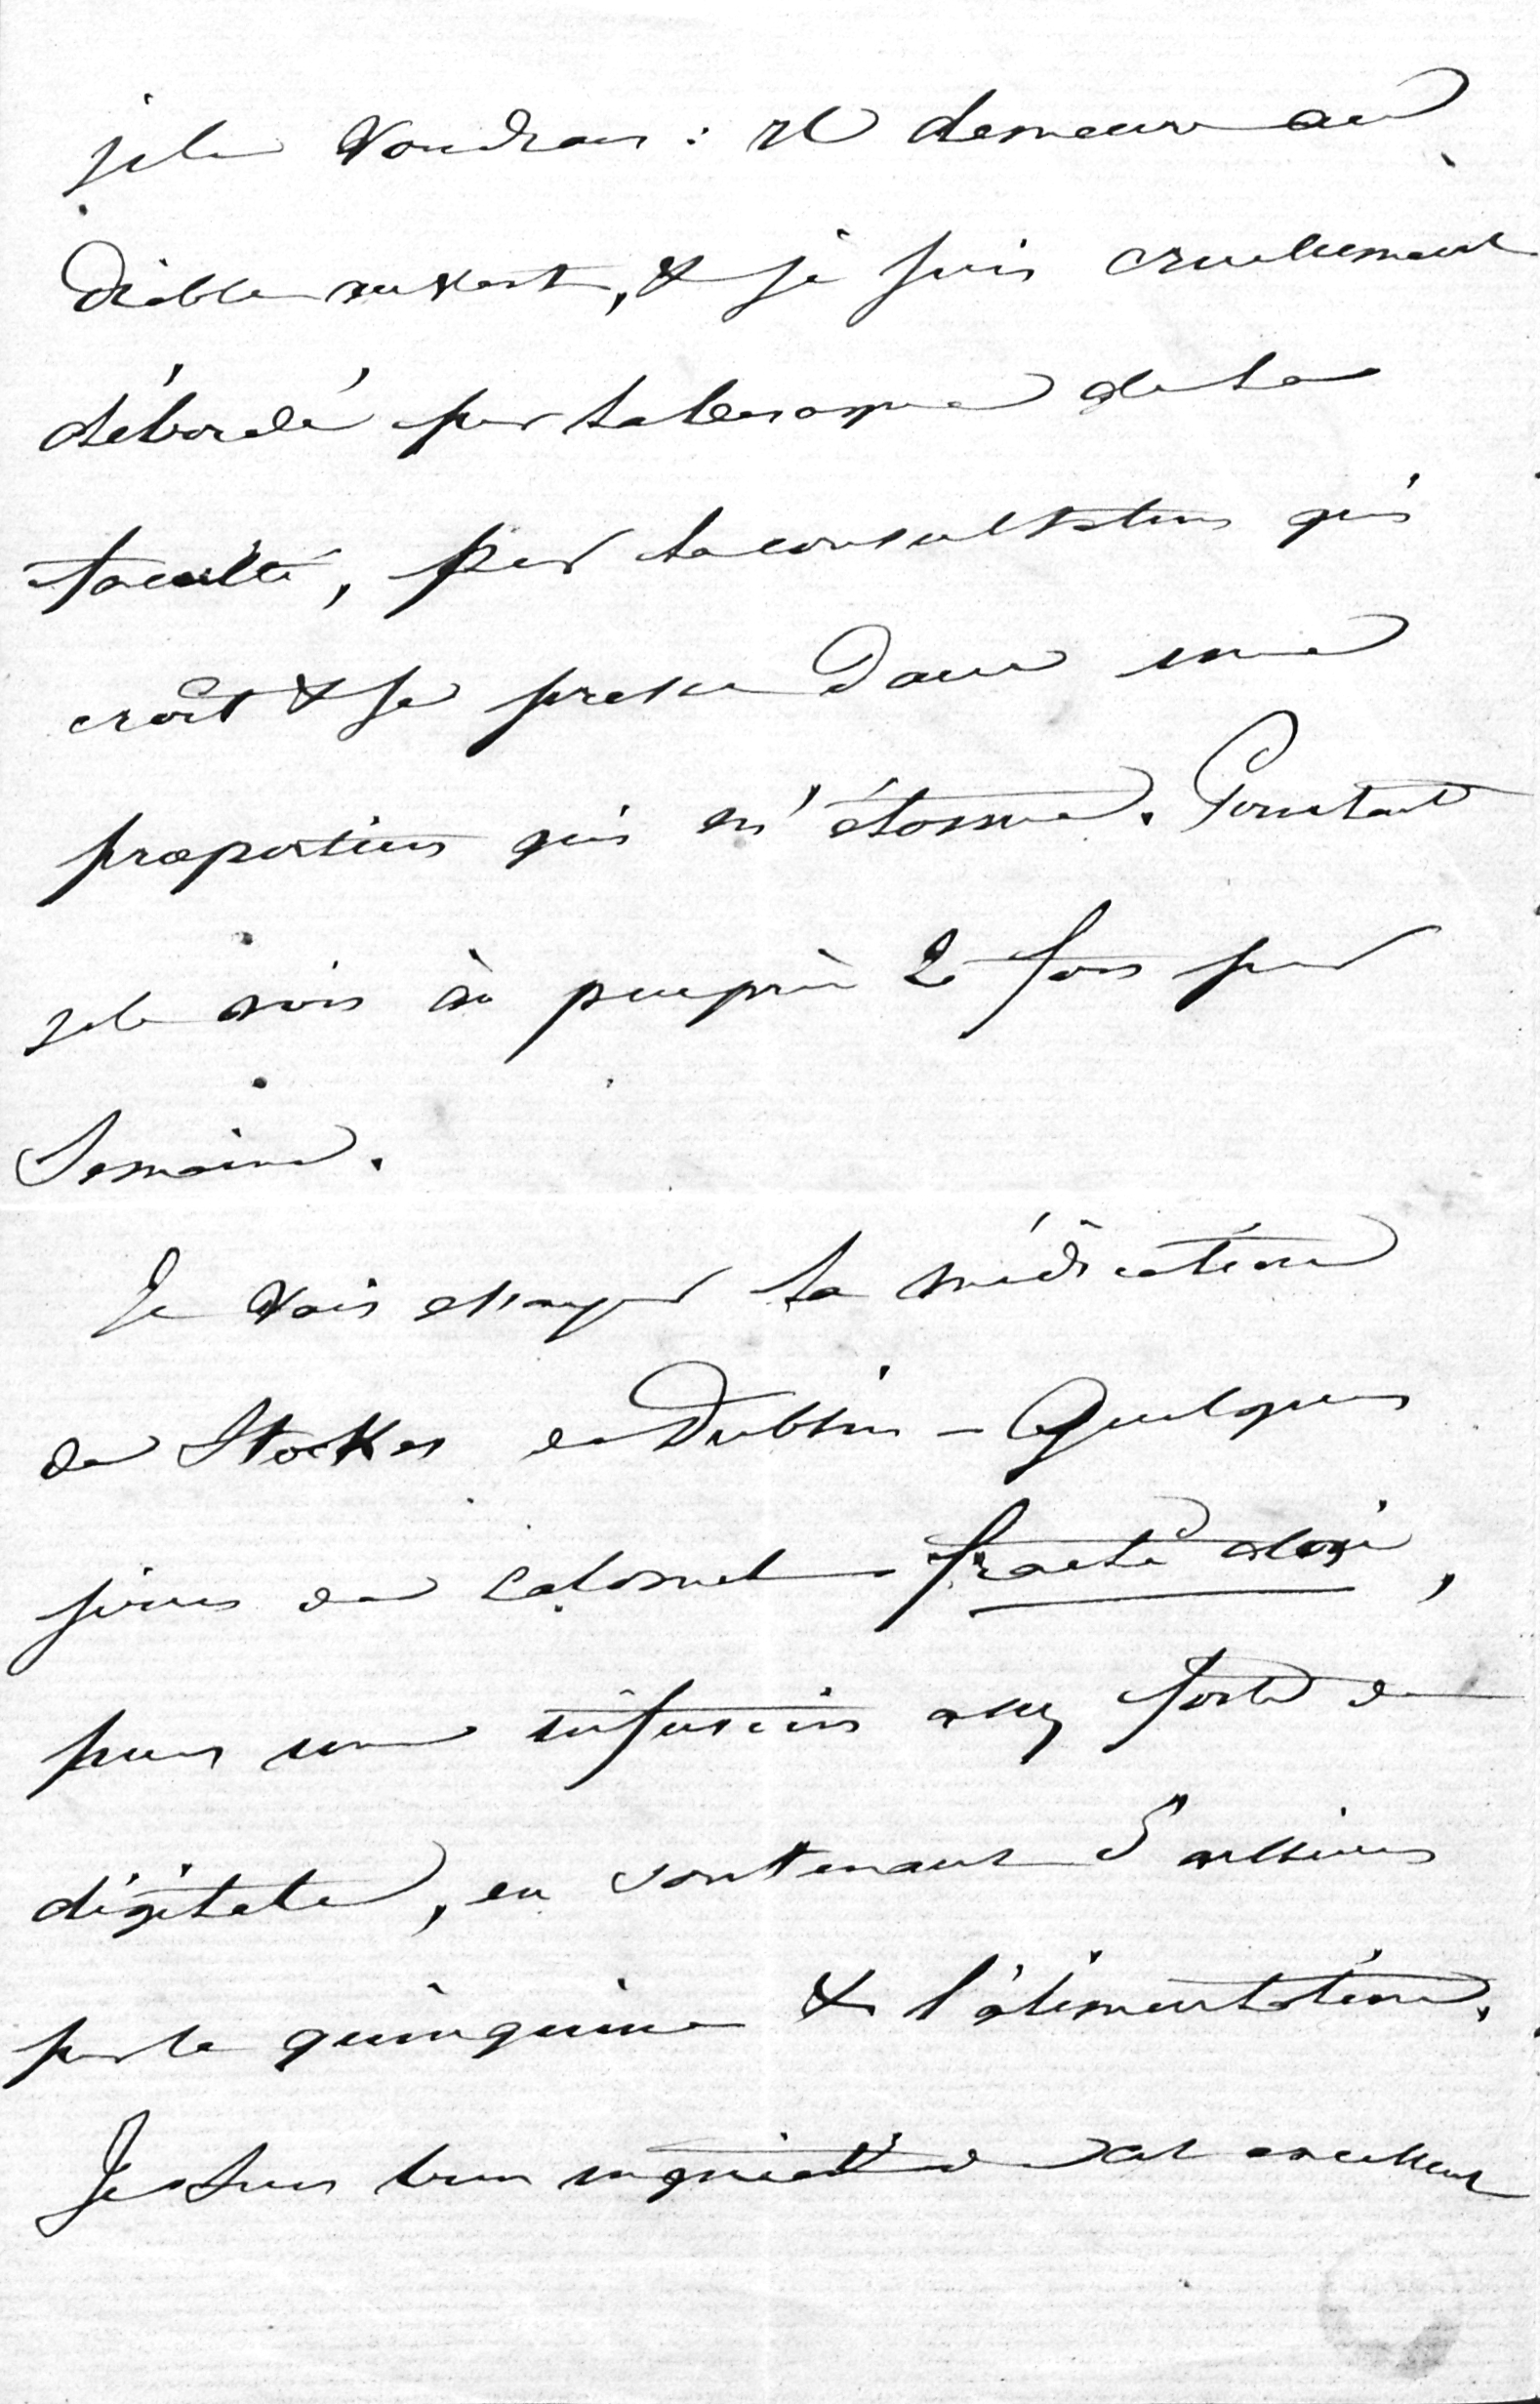 je le voudrais : il demeure au
Diable au vert, & je suis cruellement
débordé par la besogne de la
faculté, par la consultation qui
croît & se presse dans une
proportion qui m'étonne. Pourtant
je le vois à peu près 2 fois par
Semaine.
Je vais essayer la médication
de Stockes de Dublin – Quelques
jours de calomel – fractâ dosi,
puis une infusion assez forte de
digitale, en soutenant d'ailleurs
par le quinquina & l'alimentation.
Je suis bien inquiet de cet excellent